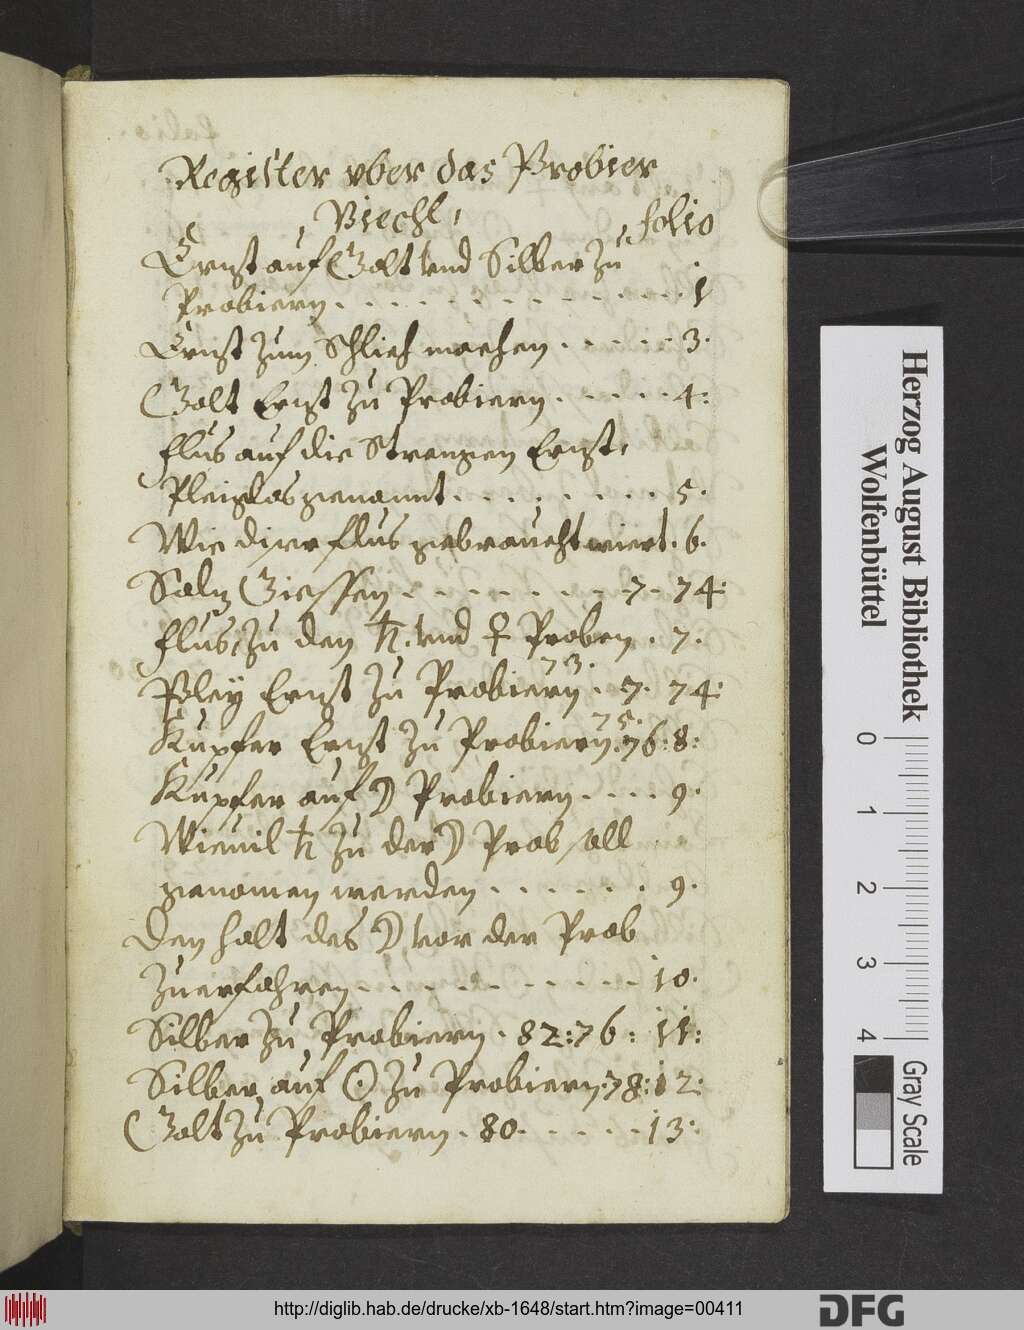 Register vber das Probier
Biechl,
folio
Ernst auf Golt vnd Silber Zu
Probiern . . . . . . . . . . . . . . 1
Ernst zum Schlieh machen . . . . . 3.
Golt Ernst zu Probiern . . . . . 4:
flus auf die Strengen Ernst,
Pleiglas genannt . . . . . . . . 5.
Wie diser flus gebraucht wiert. 6.
Saln Giessen . . . . . . . . 7. 74:
flus, zu den ♄. vnd ♀ Proben . 7.
73.
Pley Ernst zu Probiern . 7. 74:
75.
Kupfer Ernst zu Probiern. 76: 8:
Kupfer auf ☽ Probiern . . . . 9.
Wieuil ♄ zu der ☽ Prob soll
genomen werden . . . . . . . 9.
Den halt des ☽ vor der Prob
Zuerfahren . . . . . . . . . . . 10.
Silber zu Probiern . 82: 76: 11:
Silber auf ☉ zu Probiern: 78: 12:
Golt zu Probiern . 80. . . . . . 13:
Herzog August Bibliothek
Wolfenbüttel
0 1 2 3 4
Gray Scale
http://diglib.hab.de/drucke/xb-1648/start.htm?image=00411
DFG